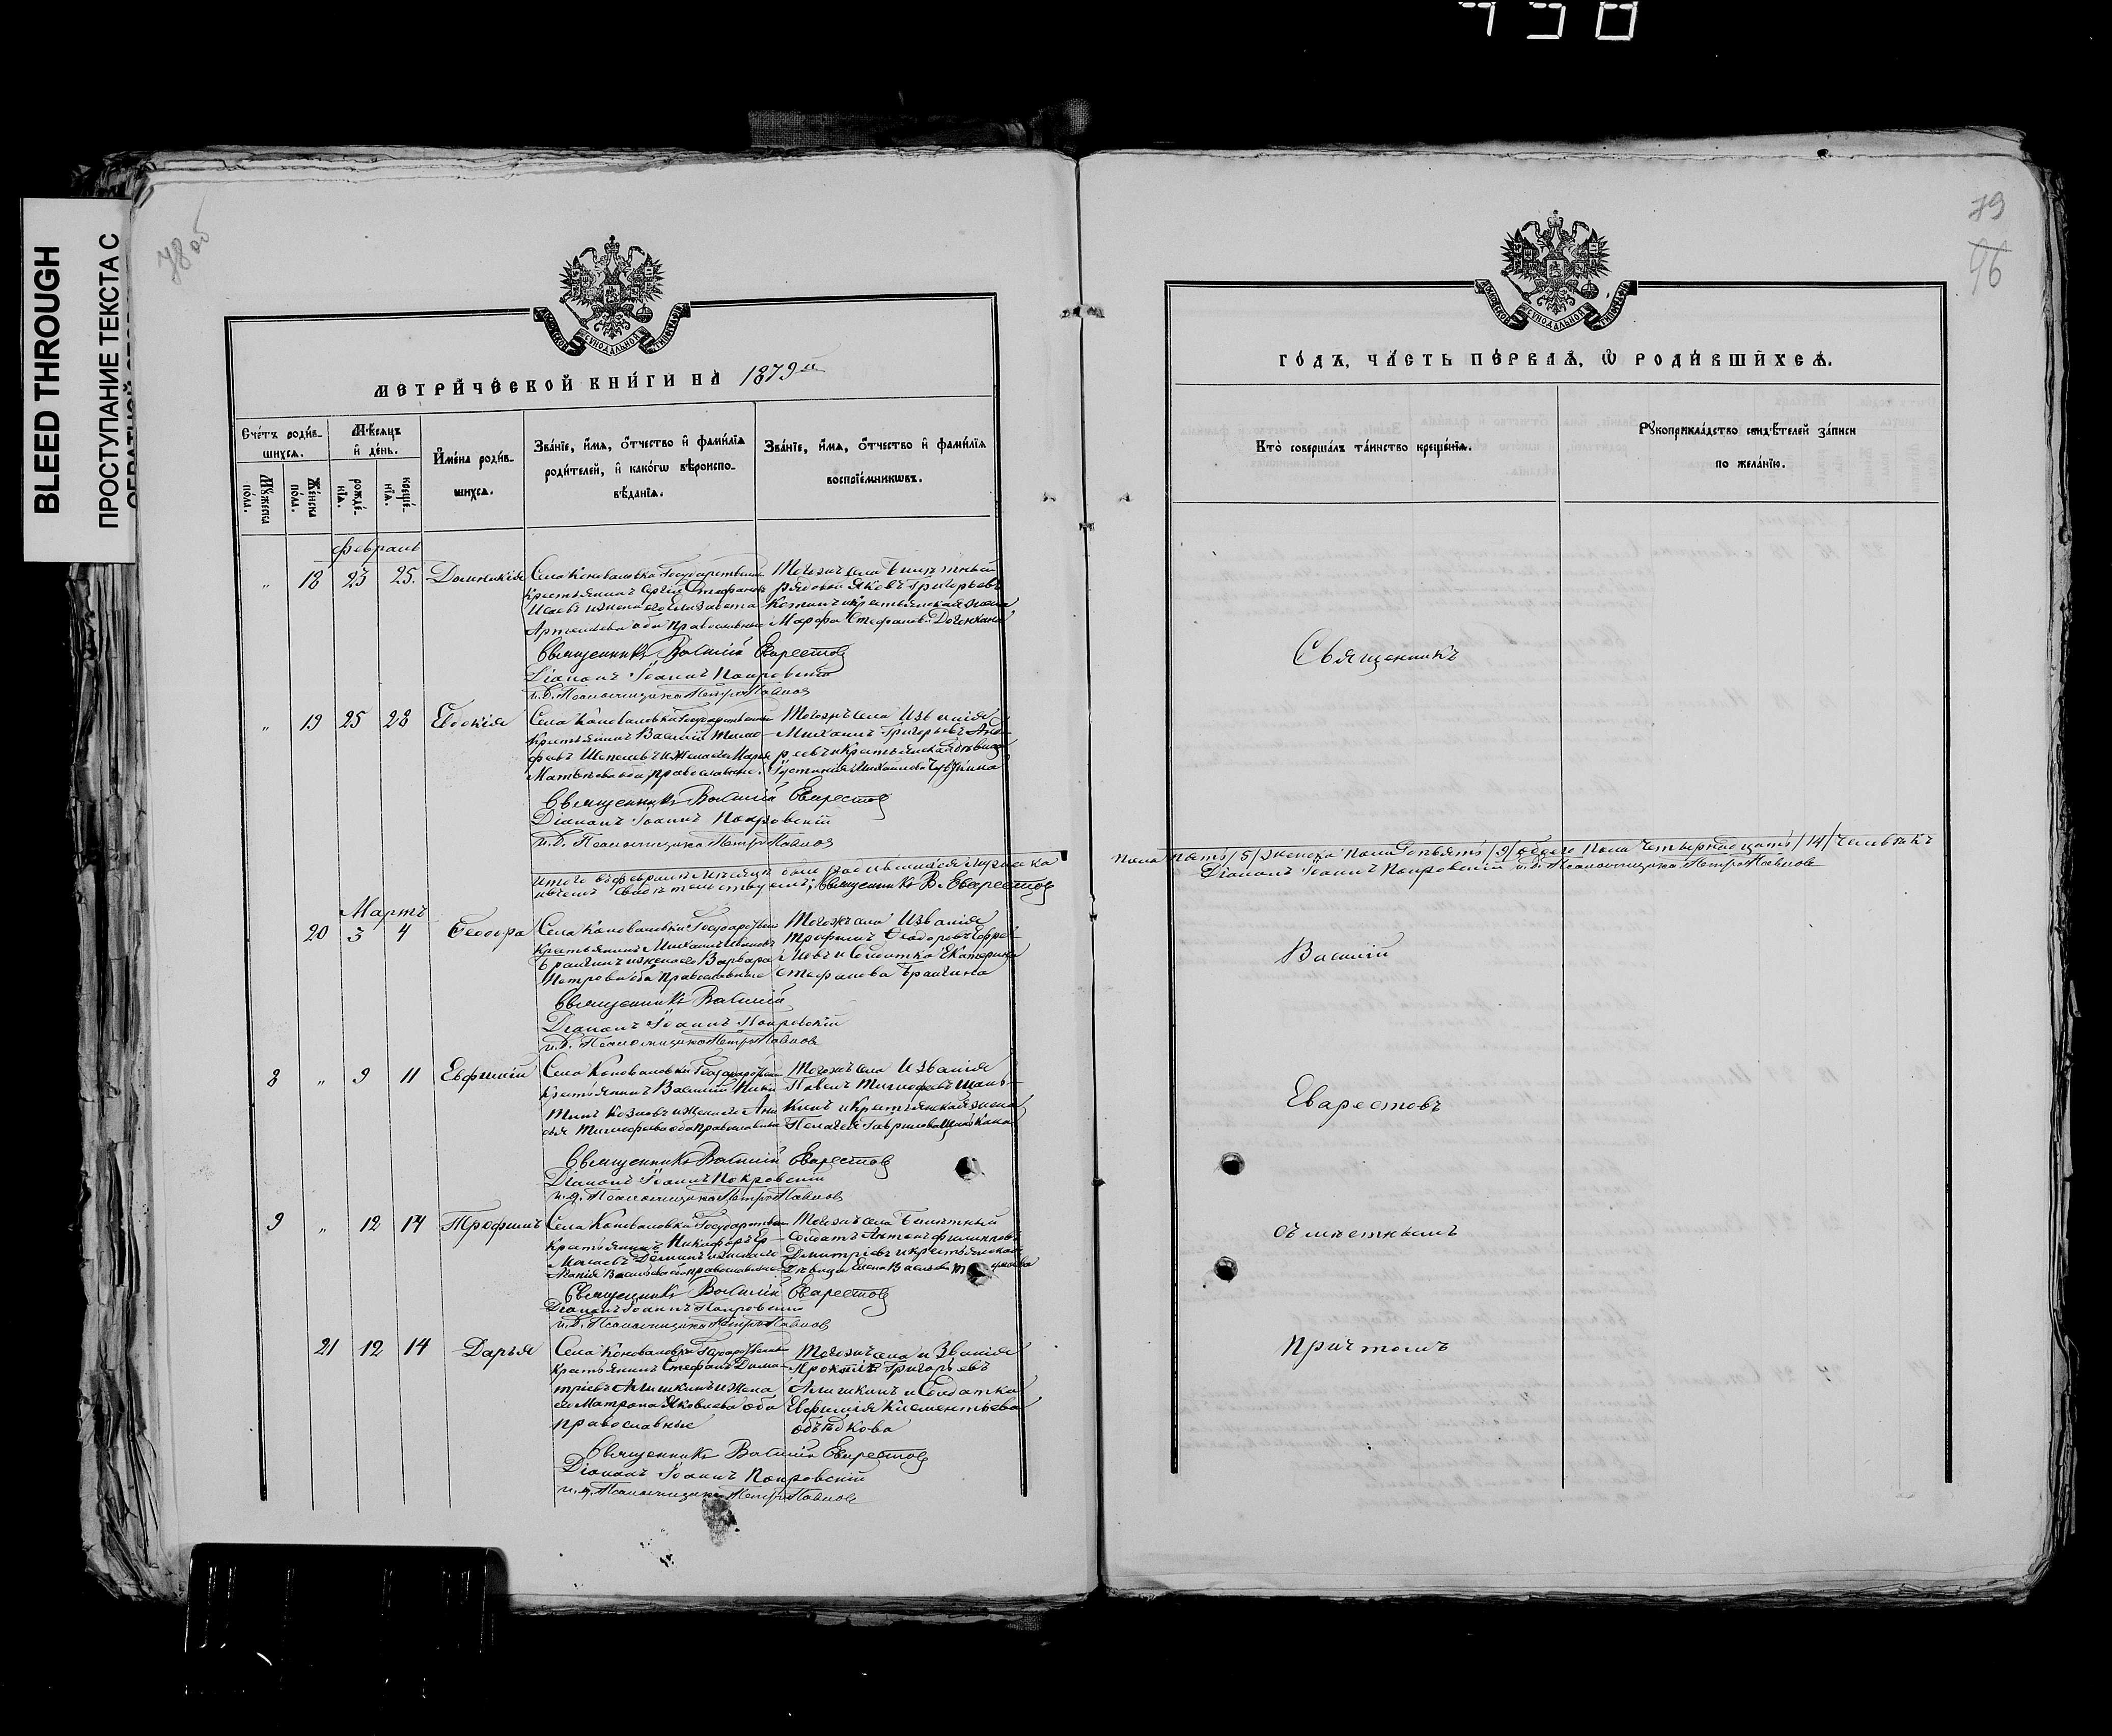 958
BLEED THROUGH
ПРОСТУПАНИЕ ТЕКСТА С
78 об
МЕТРИЧЕСКОЙ КНИГИ НА 1879й
Счетъ родив-
шихся.
Мѣсяцъ
и день.
Имена родив-
шихся.
Званіе, имя, отчество и фамилія
родителей, и какогѡ вѣроиспо-
вѣданія.
Званіе, имя, отчество и фамилія
воспріемникѡвъ.
Мужеска
пола.
Женска
пола.
рожде-
нія.
креще-
нія.
Февраль
" 18 23 25. Домникія
Села Коноваловки Государствен
крестьянинъ Сергій Стефановъ
Исаевъ и жена его Елизавета
Артемьева оба православные
Тогожъ села Билетный
рядовой Яковъ Григорьевъ
и крестьянская жена
Марфа Стефанова
Священникъ Василій Еварестовъ
Діаконъ Іоаннъ Покровскій
и.д. Псаломщика Петръ Павловъ
" 19 25 28 Евдокія
Села Коноваловки Государственный
Крестьянинъ Василій Тимо-
феевъ Шепелевъ и жена его Марья
Матвѣева оба православные.
Тогожъ села И званія
Михаилъ Григорьевъ Анд-
реевъ и Крестьянская дѣвица
Іустинія Михайлова
Священникъ Василій Еварестовъ
Діаконъ Іоаннъ Покровскій
и.д. Псаломщика Петръ Павловъ
Итого въ февралѣ мѣсяцѣ было родившихся мужеска
Свидѣтельствуемъ; Священникъ В. Еварестовъ
Мартъ
20 3 4 Ѳеодора
Села Коноваловки Государствен
Крестьянинъ Михаилъ Ивановъ
Брагинъ и жена его Варвара
Петрова оба православные
Тогожъ села И званія
Трофимъ Ѳеодоровъ Ефре-
мовъ и Солдатка Екатерина
Стефанова Брагина
Священникъ Василій
Діаконъ Іоаннъ Покровскій
и.д. Псаломщика Петръ Павловъ
8 " 9 11 Евфимій
Села Коноваловки Государствен
Крестьянинъ Василій Ники-
тинъ Козловъ и жена его Ана
Тимофеева оба православные
Тогожъ села И званія
Павелъ Тимофеевъ Шань-
кинъ и Крестьянская жена
Пелагея Гаврилова Шанькина
Священникъ Василій Еварестовъ
Діаконъ Іоаннъ Покровскій
и.д. Псаломщика Петръ Павловъ
9 " 12 14 Трофимъ
Села Коноваловки Государствен
Крестьянинъ Никифоръ Ер-
молаевъ Деминъ и жена его
Васильева оба православные
Тогожъ села Билетный
Солдатъ Антонъ Филиповъ
Димитріевъ и крестьянская
Дѣвица Елена Васильева
Священникъ Василій Еварестовъ
Діаконъ Іоаннъ Покровскій
и.д. Псаломщика Петръ Павловъ
21 12 14 Дарья
Села Коноваловки Государствен
крестьянинъ Стефанъ Дими-
тріевъ Алишкинъ и жена
его Матрона Яковлева оба
православные
Тогожъ села и Званія
Прокопій Григорьевъ
Алишкинъ и Солдатка
Евфимія Клементьева
Объѣдкова
Священникъ Василій Еварестовъ
Діаконъ Іоаннъ Покровскій
и.д. Псаломщика Петръ Павловъ
79
96
ГОДЪ, ЧАСТЬ ПЕРВАЯ, Ѡ РОДИВШИХСЯ.
Кто совершалъ таинство крещенія.
Рукоприкладство свидѣтелей записи
по желанію.
Священникъ
пола пять /5/ женска пола девять /9/ обоего пола четырнадцать /14/ человѣкъ
Діаконъ Іоаннъ Покровскій и.д. Псаломщика Петръ Павловъ
Василій
Еварестовъ
съ мѣстнымъ
Причтомъ